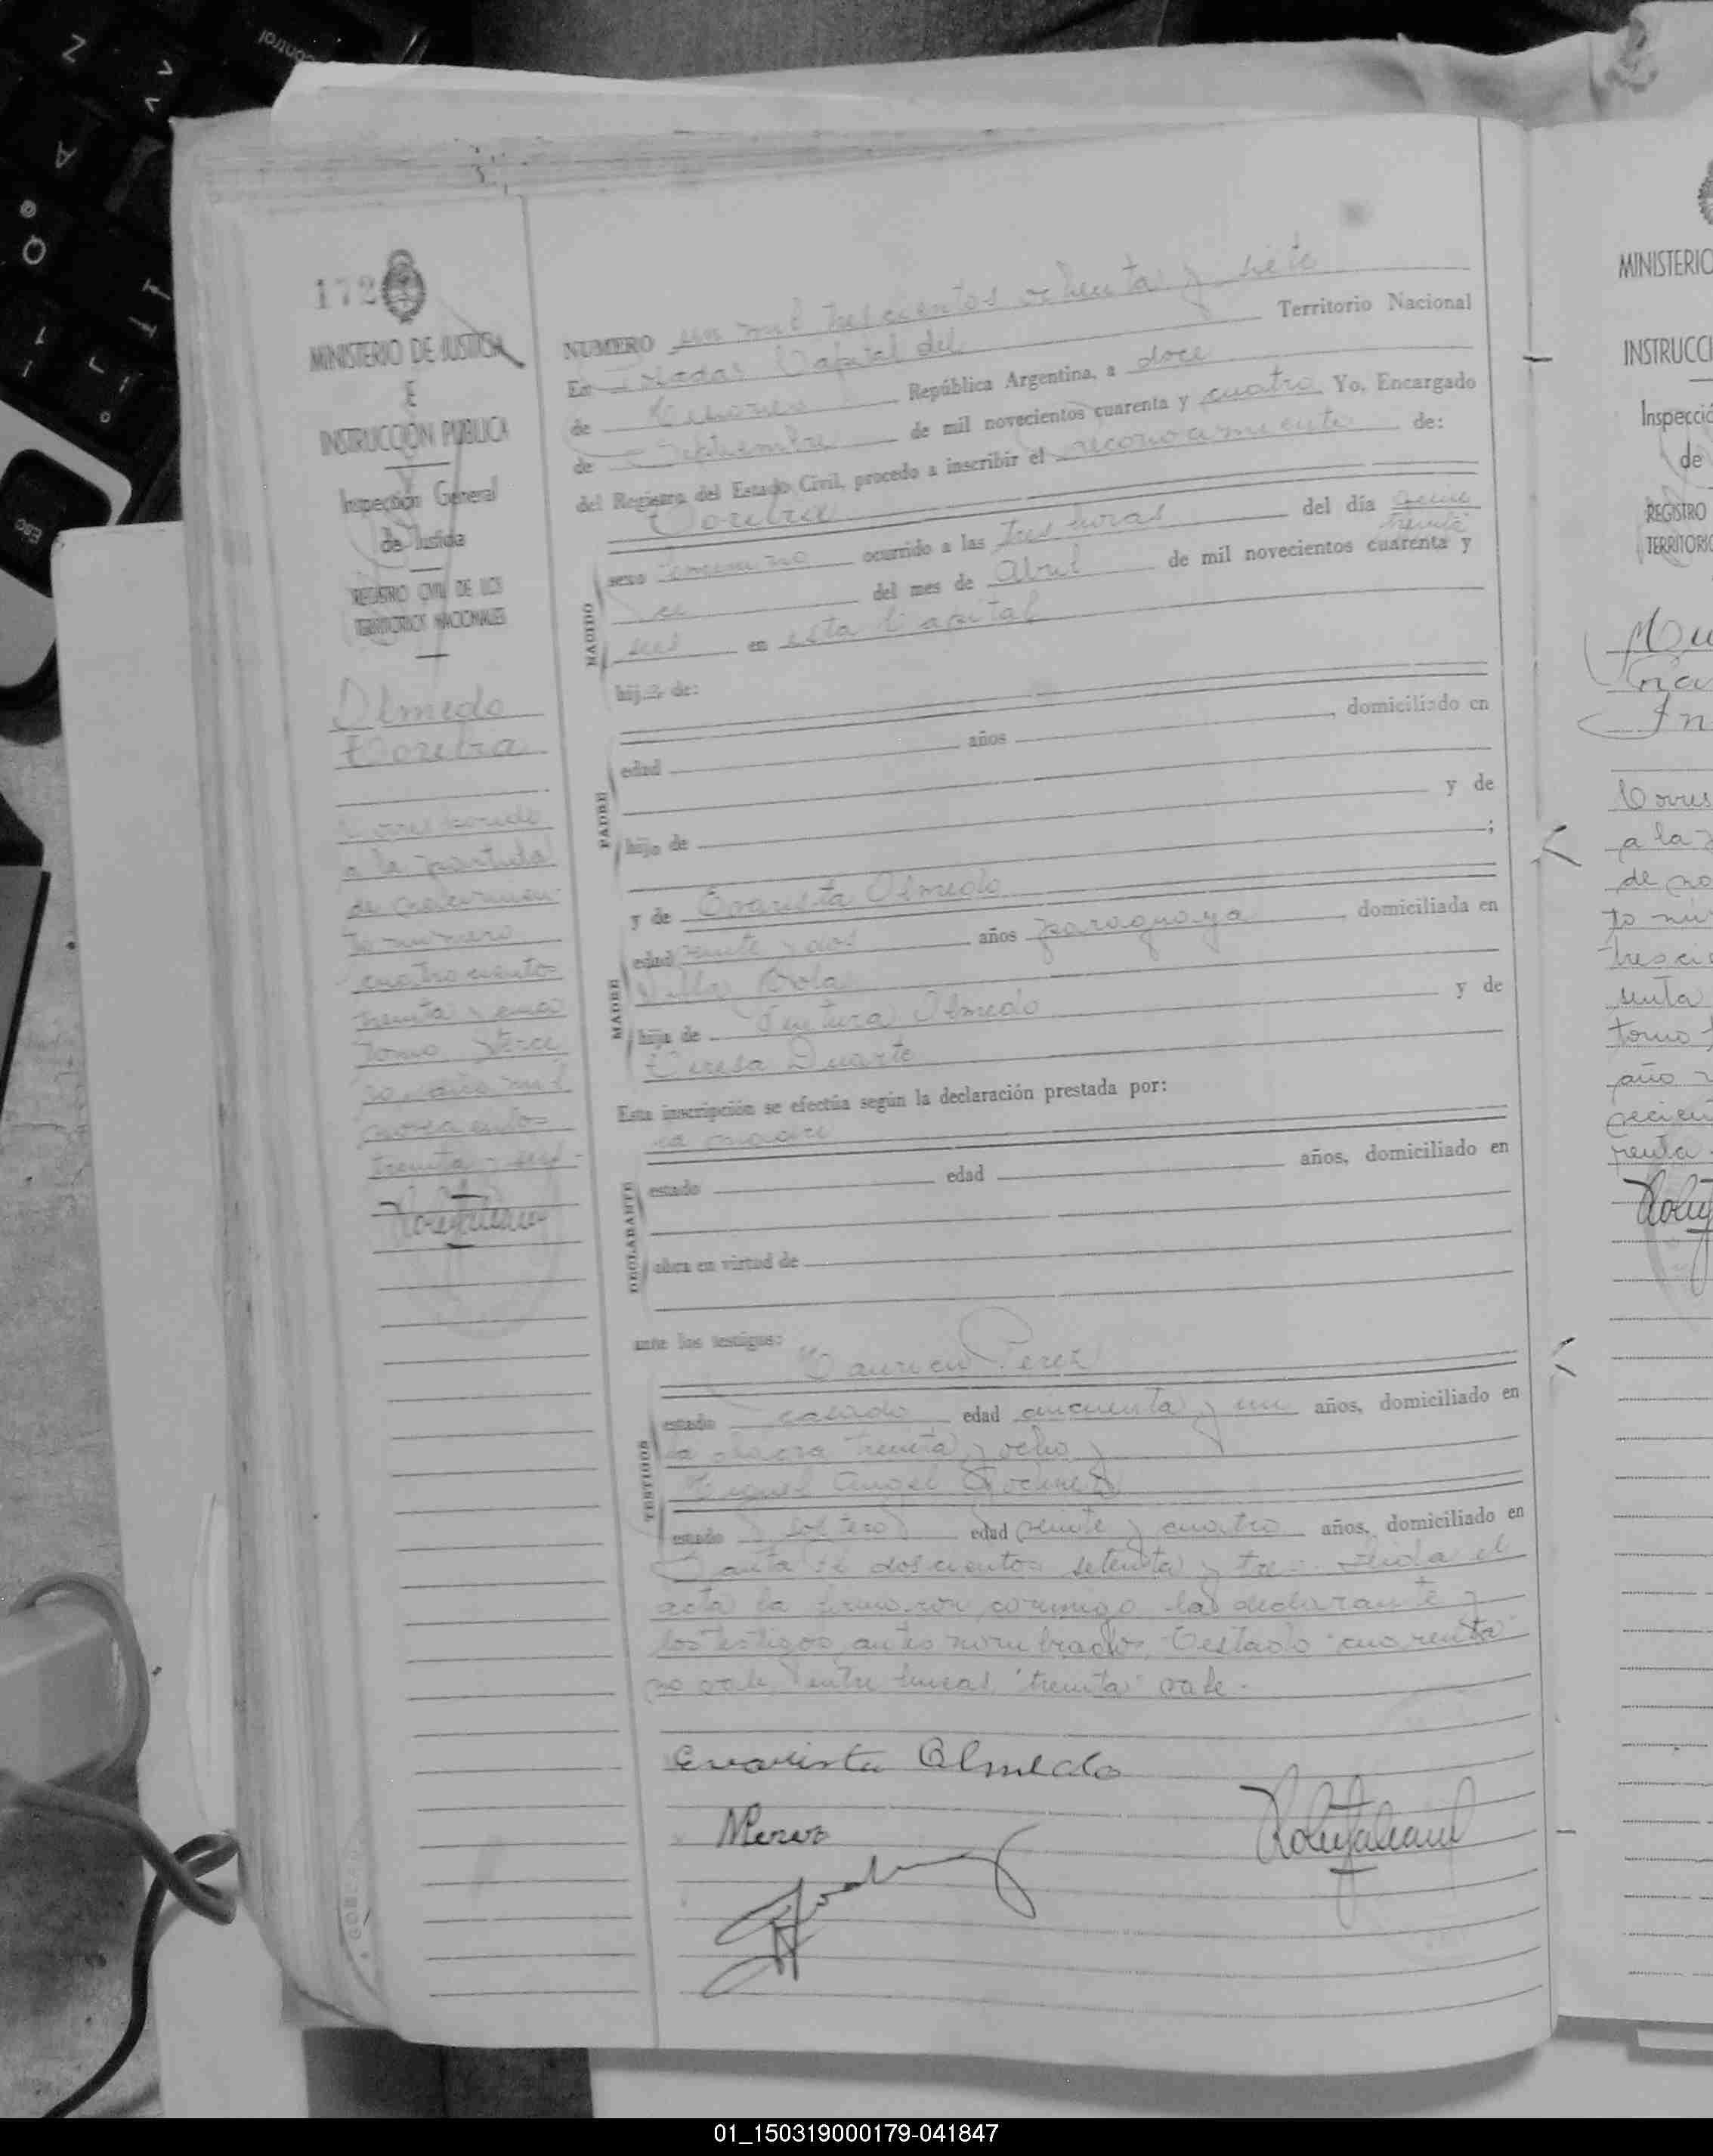 172
MINISTERIO DE JUSTICIA
E
INSTRUCCIÓN PUBLICA
Inspección General
de Justicia
REGISTRO CIVIL DE LOS
TERRITORIOS NACIONALES
Olmedo
Corresponde
a la partida
de nacimien-
to número
cuatrocientos
treinta y
tomo Terce
ro, año mil
novecientos
treinta y seis -
NUMERO un mil trescientos ochenta y siete
En Posadas Capital del Territorio Nacional
de Misiones República Argentina, a doce
de Septiembre de mil novecientos cuarenta y cuatro Yo, Encargado
del Registro del Estado Civil, procedo a inscribir el reconocimiento de:
NACIDO
sexo femenino ocurrido a las tres horas del día quin
treinta
ce del mes de Abril de mil novecientos cuarenta y
seis en esta Capital
hija de:
PADRE
edad años , domiciliado en
hijo de y de
;
MADRE
y de Evarista Olmedo
edad veinte y dos años paraguaya , domiciliada en
Villa
hija de Ventura Olmedo y de
Teresa Duarte
Esta inscripción se efectúa según la declaración prestada por:
la madre
DECLARANTE
estado edad años, domiciliado en
obra en virtud de
ante los testigos:
Perez
TESTIGOS
estado casado edad cincuenta y un años, domiciliado en
la chacra treinta y ocho y
Miguel Angel
estado soltero edad veinte y cuatro años, domiciliado en
Santa Fé doscientos setenta y tres. Leida el
acta la firmaron conmigo la declarante y
los testigos antes nombrados, Testado "cuarenta"
no vale, entre lineas, "treinta" vale.-
Evarista Olmedo
MPerez
MINISTERIO
INSTRUCCI
Inspecció
de
REGISTRO
TERRITORIO
Corres
a la p
de na
to nú
tresci
senta
tomo
año
recien
renta
01_150319000179-041847